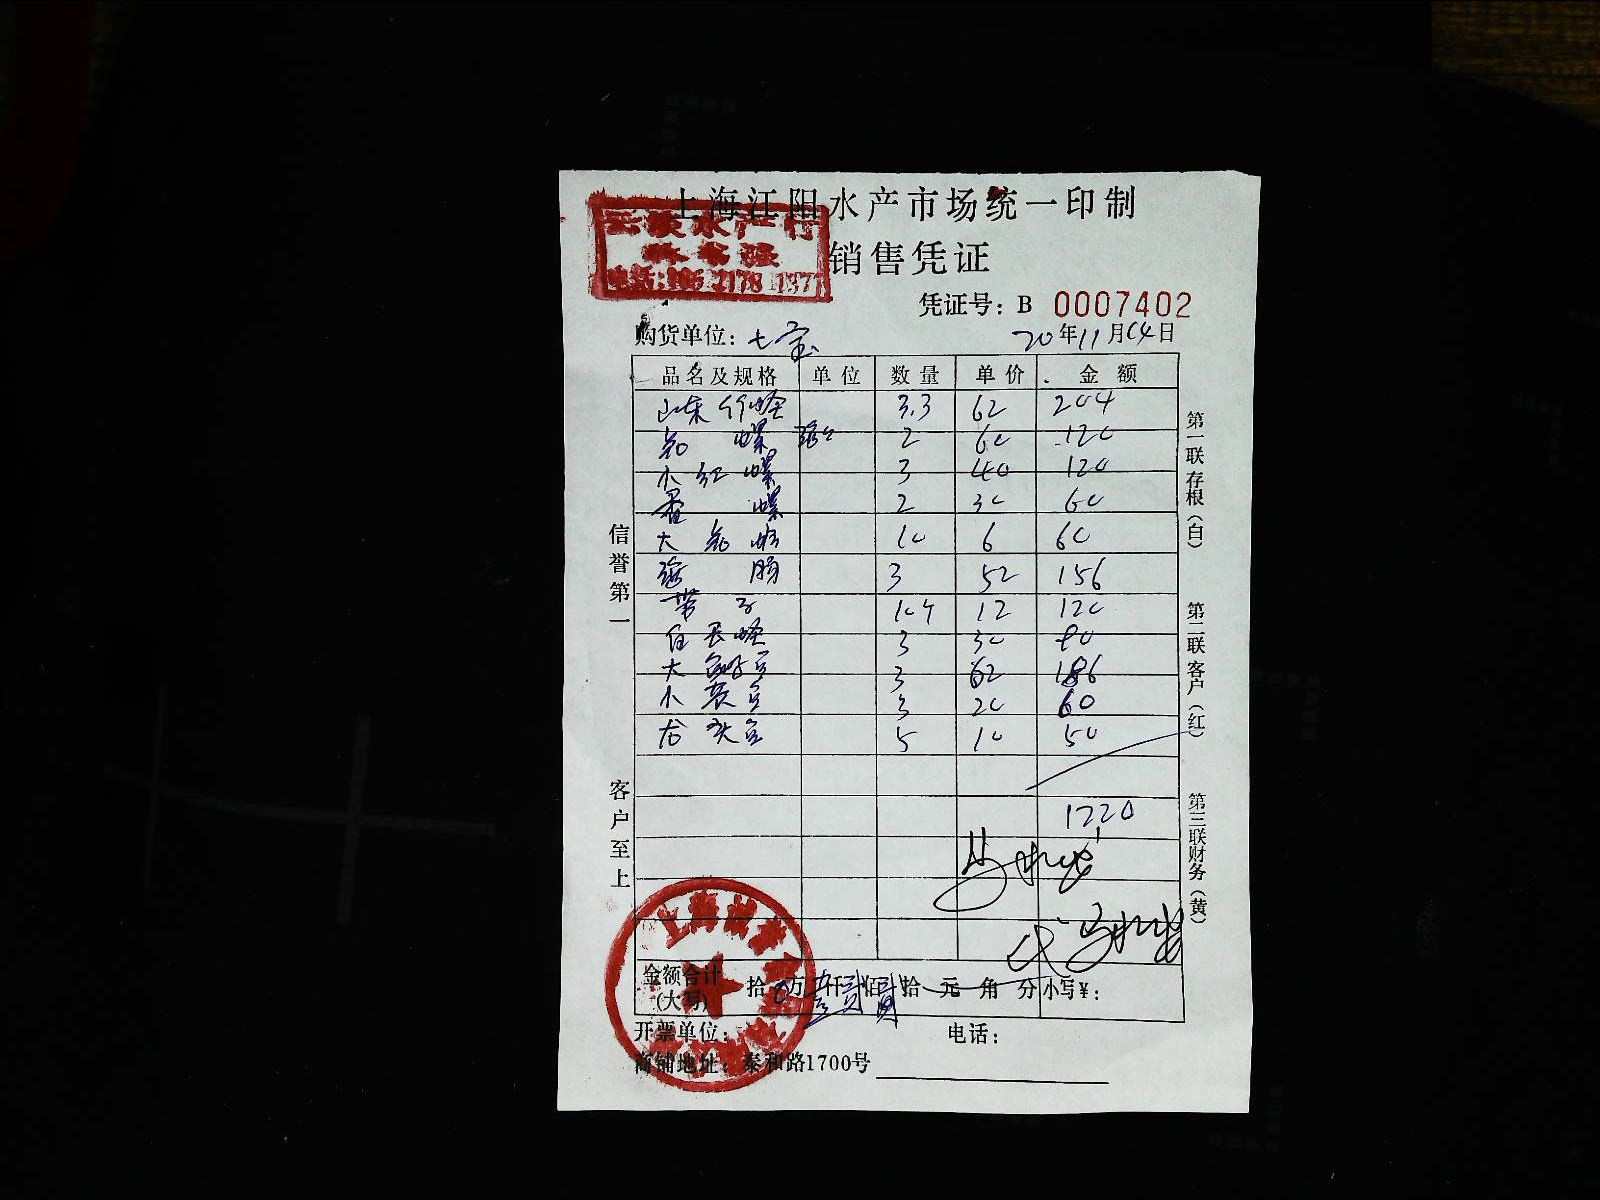 上海江阳水产市场统一印制
销售凭证
凭证号：B 0007402
购货单位：七宝 20年11月04日
品名及规格 单位 数量 单价 金额
山东竹蛏 3.3 62 204
螺 2 60 120
小红螺 3 40 120
螺 2 30 60
大 10 6 60
海肠 3 52 156
带子 10个 12 120
3 30 90
大 3 62 186
小 3 20 60
龙头 5 10 50
1220
金额合计(大写) 拾 万壹仟贰佰贰拾 元 角 分 小写￥：
开票单位： 电话：
商铺地址：泰和路1700号
信誉第一
客户至上
第一联存根（白）
第二联客户（红）
第三联财务（黄）